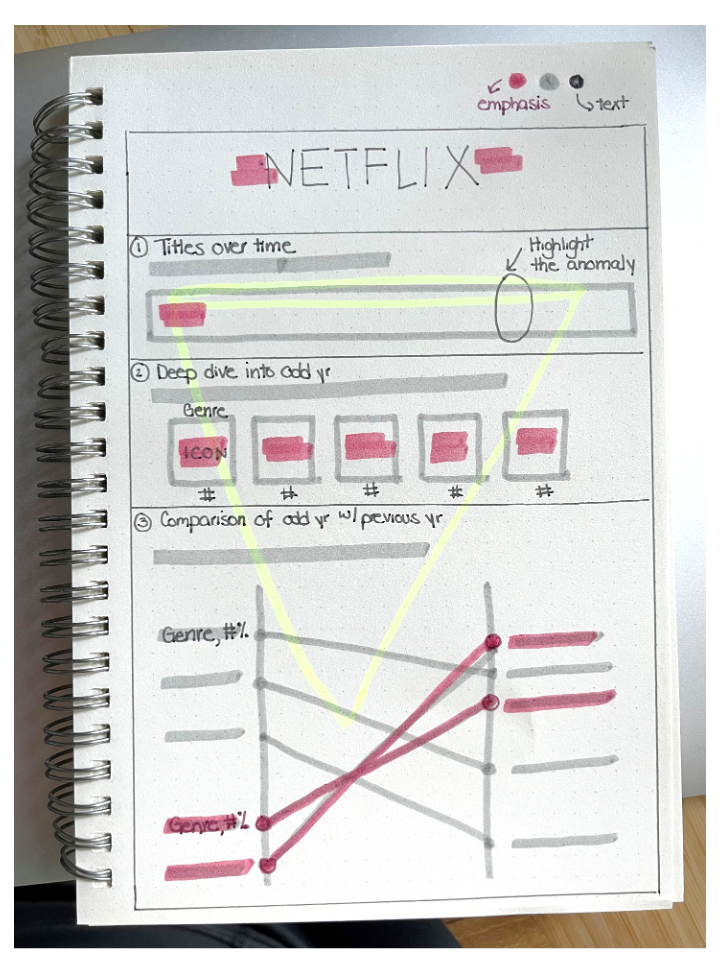 emphasis
text
NETFLIX
① Titles over time
Highlight
the anomaly
② Deep dive into odd yr
Genre
ICON
# # # # #
③ Comparison of odd yr w/ previous yr
Genre, #%
Genre, #%